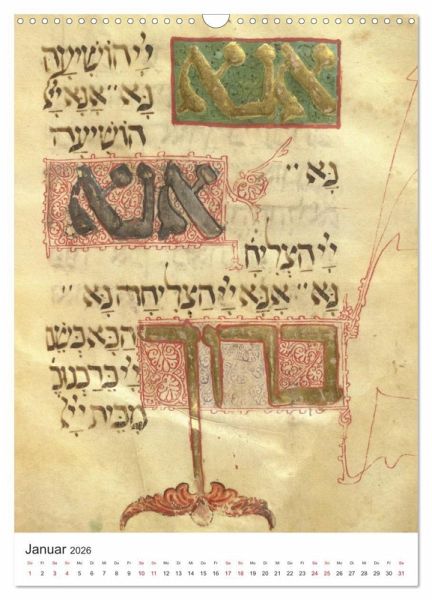 אנא יְיָ הוֹשִׁיעָה
נָּא׃ אָנָּא יְיָ
הוֹשִׁיעָה
נָּא׃
אנא
יְיָ הַצְלִיחָ
נָּא׃ אָנָּא יְיָ הַצְלִיחָה נָּא׃
ברוך הַבָּא בְּשֵׁם
יְיָ בֵּרַכְנוּכ
מִבֵּית יְיָ
Januar 2026
Do Fr Sa So Mo Di Mi Do Fr Sa So Mo Di Mi Do Fr Sa So Mo Di Mi Do Fr Sa So Mo Di Mi Do Fr Sa
1 2 3 4 5 6 7 8 9 10 11 12 13 14 15 16 17 18 19 20 21 22 23 24 25 26 27 28 29 30 31